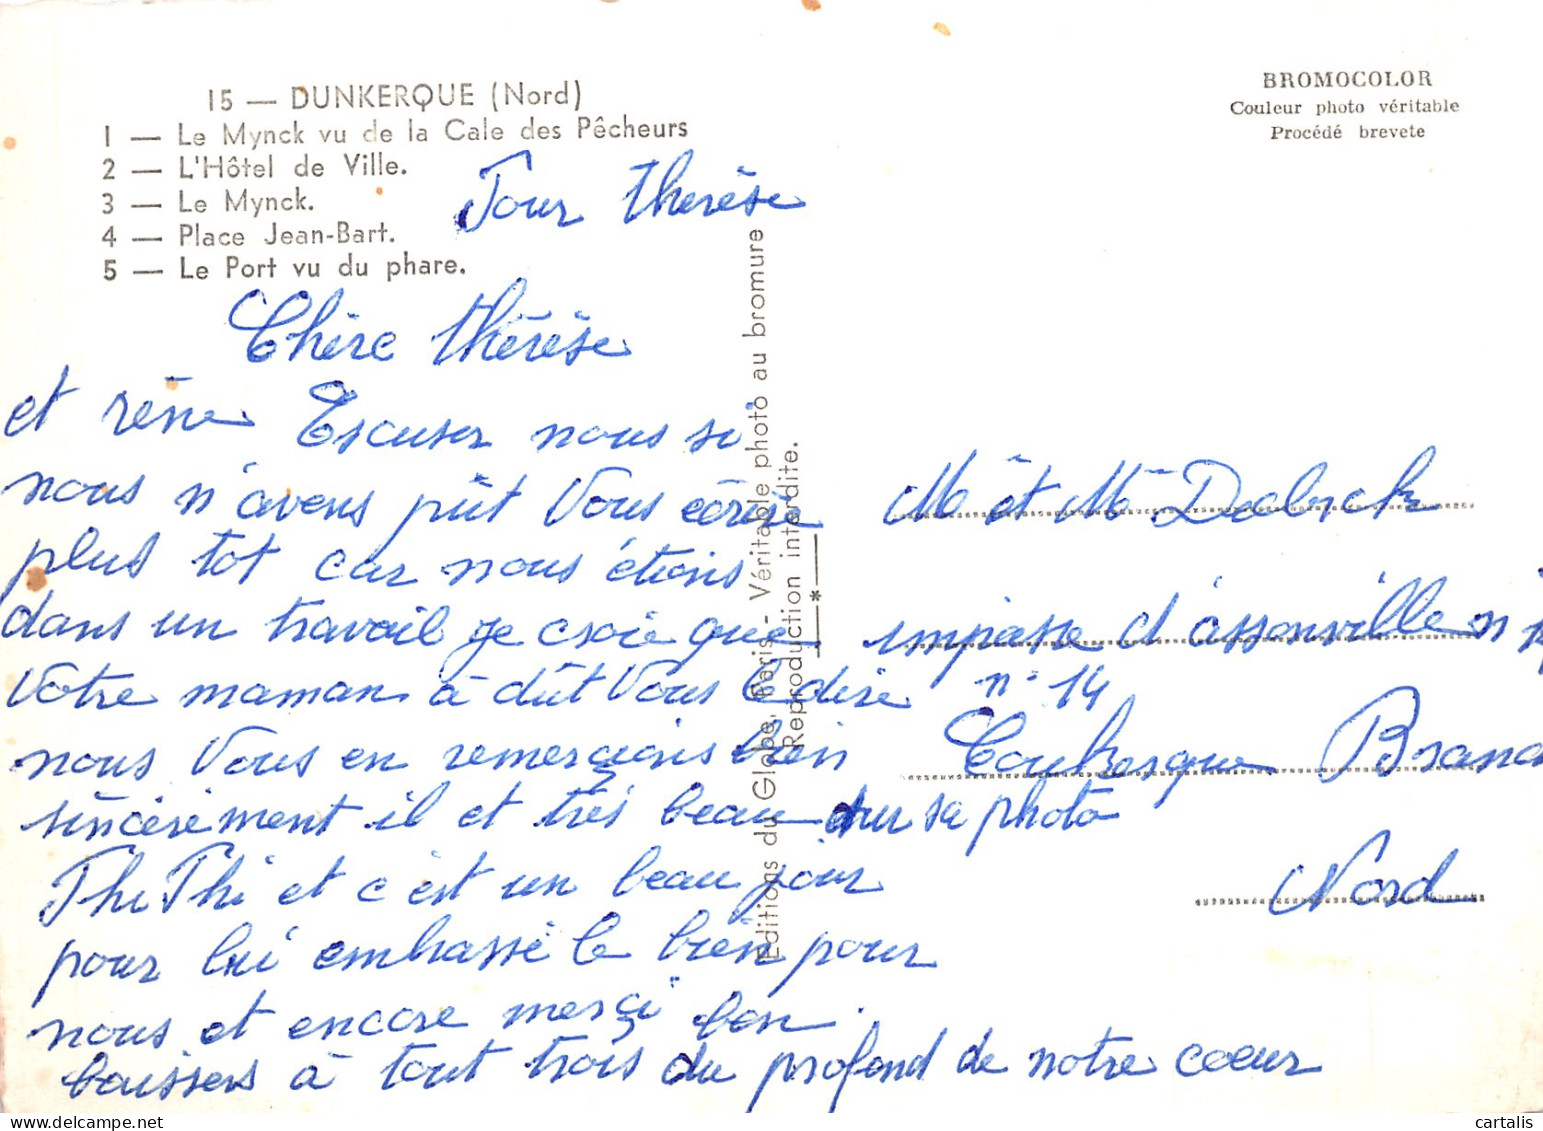 15 — DUNKERQUE (Nord)
1 — Le Mynck vu de la Cale des Pêcheurs
2 — L'Hôtel de Ville.
3 — Le Mynck.
4 — Place Jean-Bart.
5 — Le Port vu du phare.
BROMOCOLOR
Couleur photo véritable
Procédé brevete
Pour therèse
Chère thérèse
et réne Escuser nous si
nous n'avens pût Vous écrire
plus tot car nous étions
dans un travail je croie que
Votre maman à dût Vous le dire
nous Vous en remerçions bien
sincérement il et trés beau sur sa photo
Thi Thi et c'est un beau jour
pour lui embrassé le bien pour
nous et encore merçi bon
baisers à tout trois du profond de notre coeur
Editions du Globe, Paris - Véritable photo au bromure
Reproduction interdite.
*
M et Mme Dabrck
impasse d'assonville n
n° 14
Coukerque Branc
Nord
cartalis